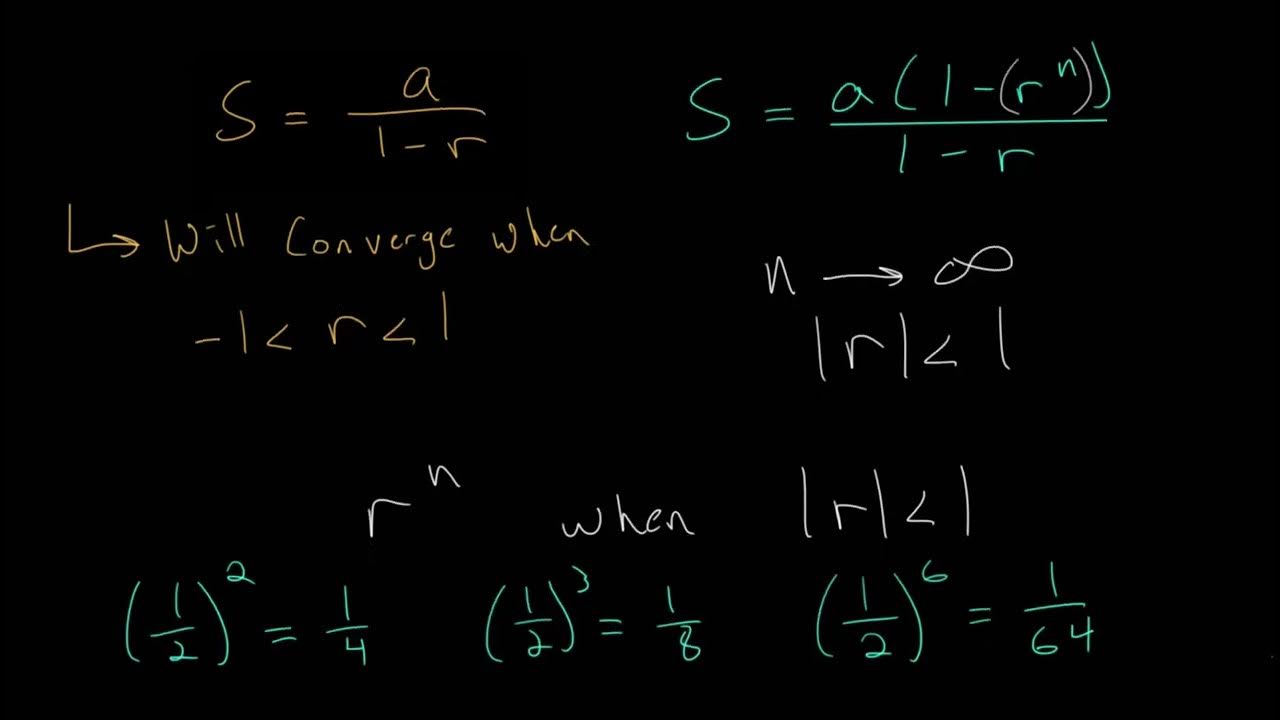 S = a / (1 - r)
S = a(1 - (r^n)) / (1 - r)
↳ Will Converge when
-1 < r < 1
n → ∞
|r| < 1
r^n when |r| < 1
(1/2)^2 = 1/4 (1/2)^3 = 1/8 (1/2)^6 = 1/64